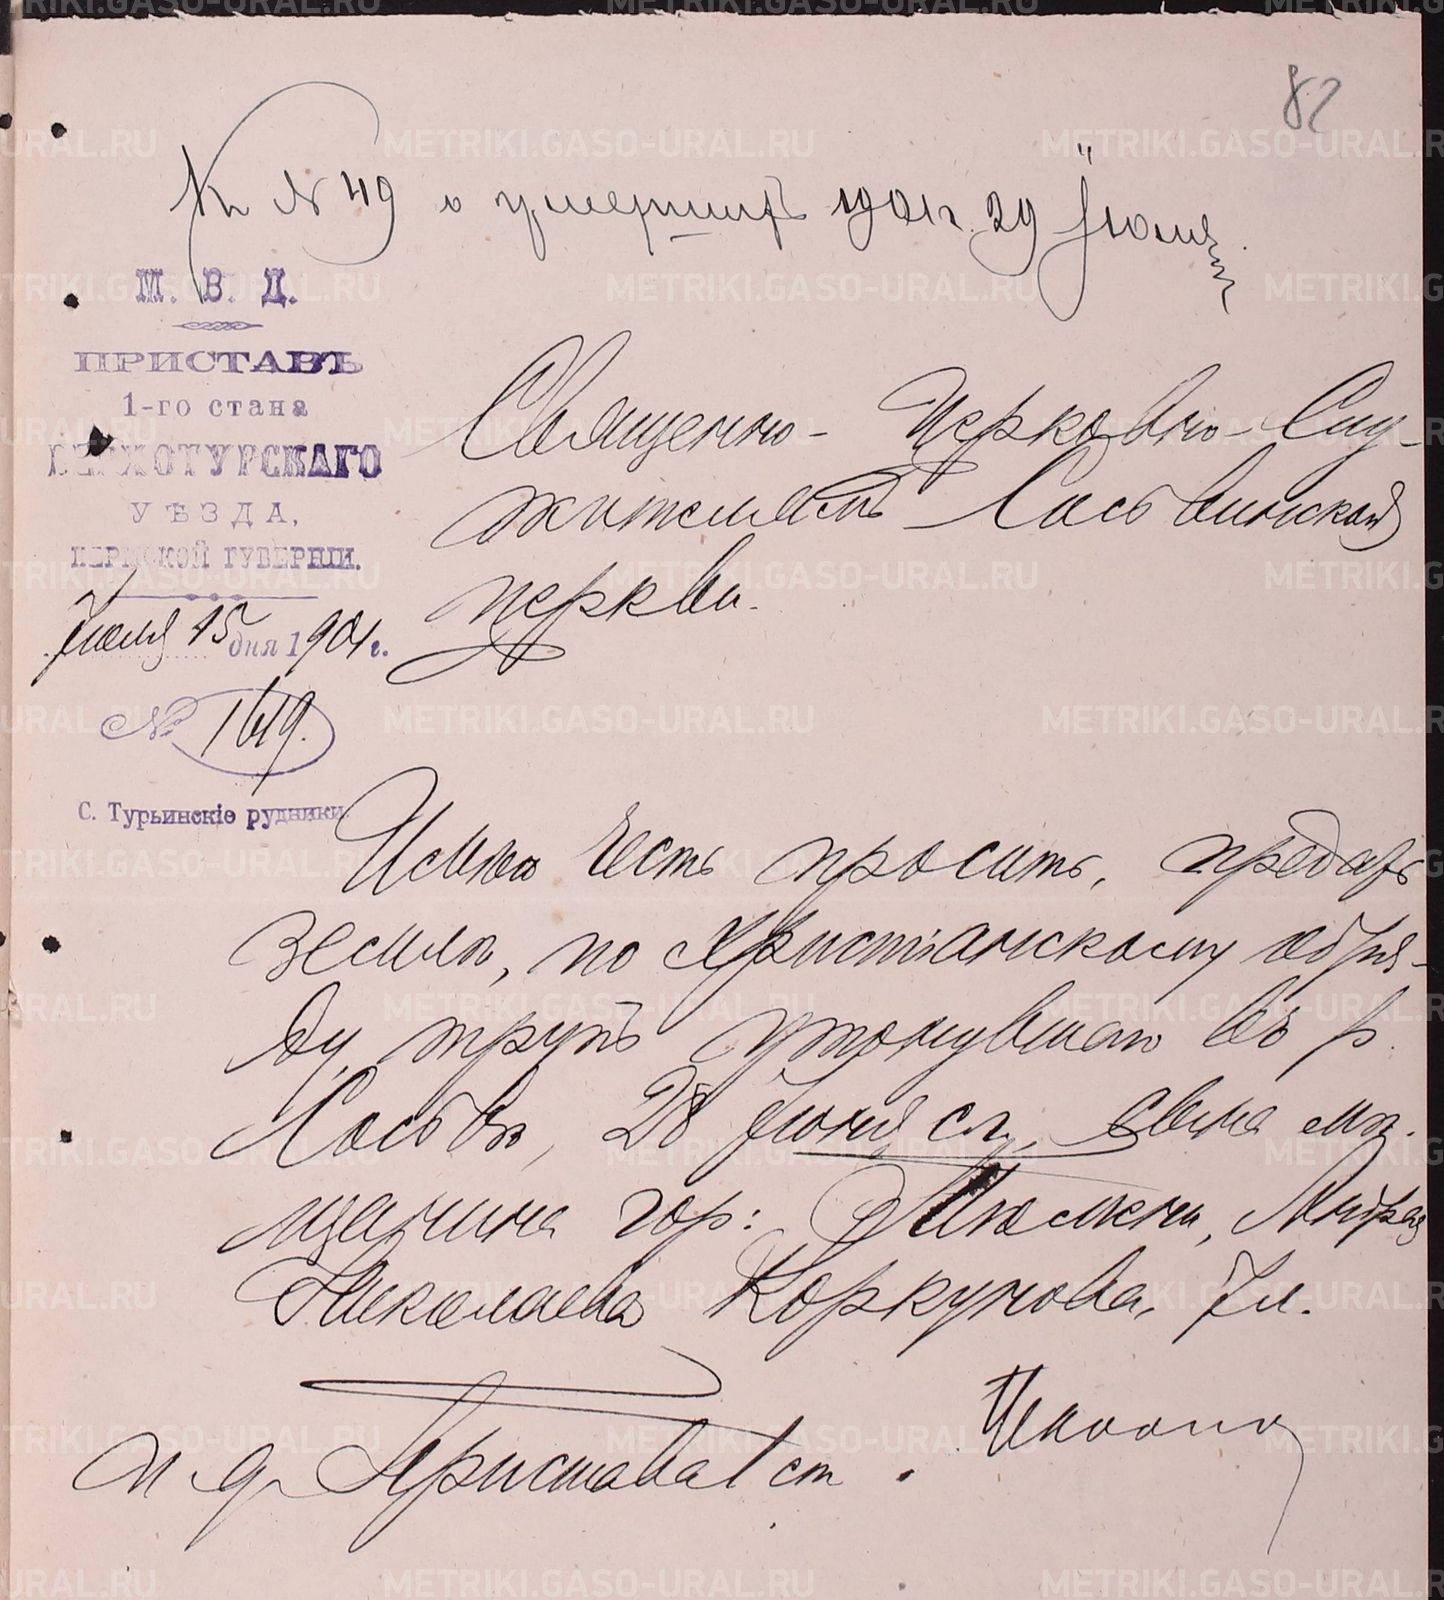 82
К № 49 о умершихъ 1901 г. 29 Іюня
М. В. Д.
ПРИСТАВЪ
1-го стана
ВЕРХОТУРСКАГО
УѢЗДА,
ПЕРМСКОЙ ГУБЕРНІИ.
15 дня 1901 г.
№ 1619.
С. Турьинскіе рудники.
Священно-Церковно-Слу-
жителямъ Сосьвинской
церкви.
Имѣю честь просить, предать
землѣ, по христіанскому обря-
ду, трупъ утонувшаго въ р.
Сосьвѣ, 28 Іюня с. г., сына мѣ-
щанина гор: Тюмени, Андрея
Николаева Коркунова, 7 л.
И д Пристава 1 ст.
METRIKI.GASO-URAL.RU